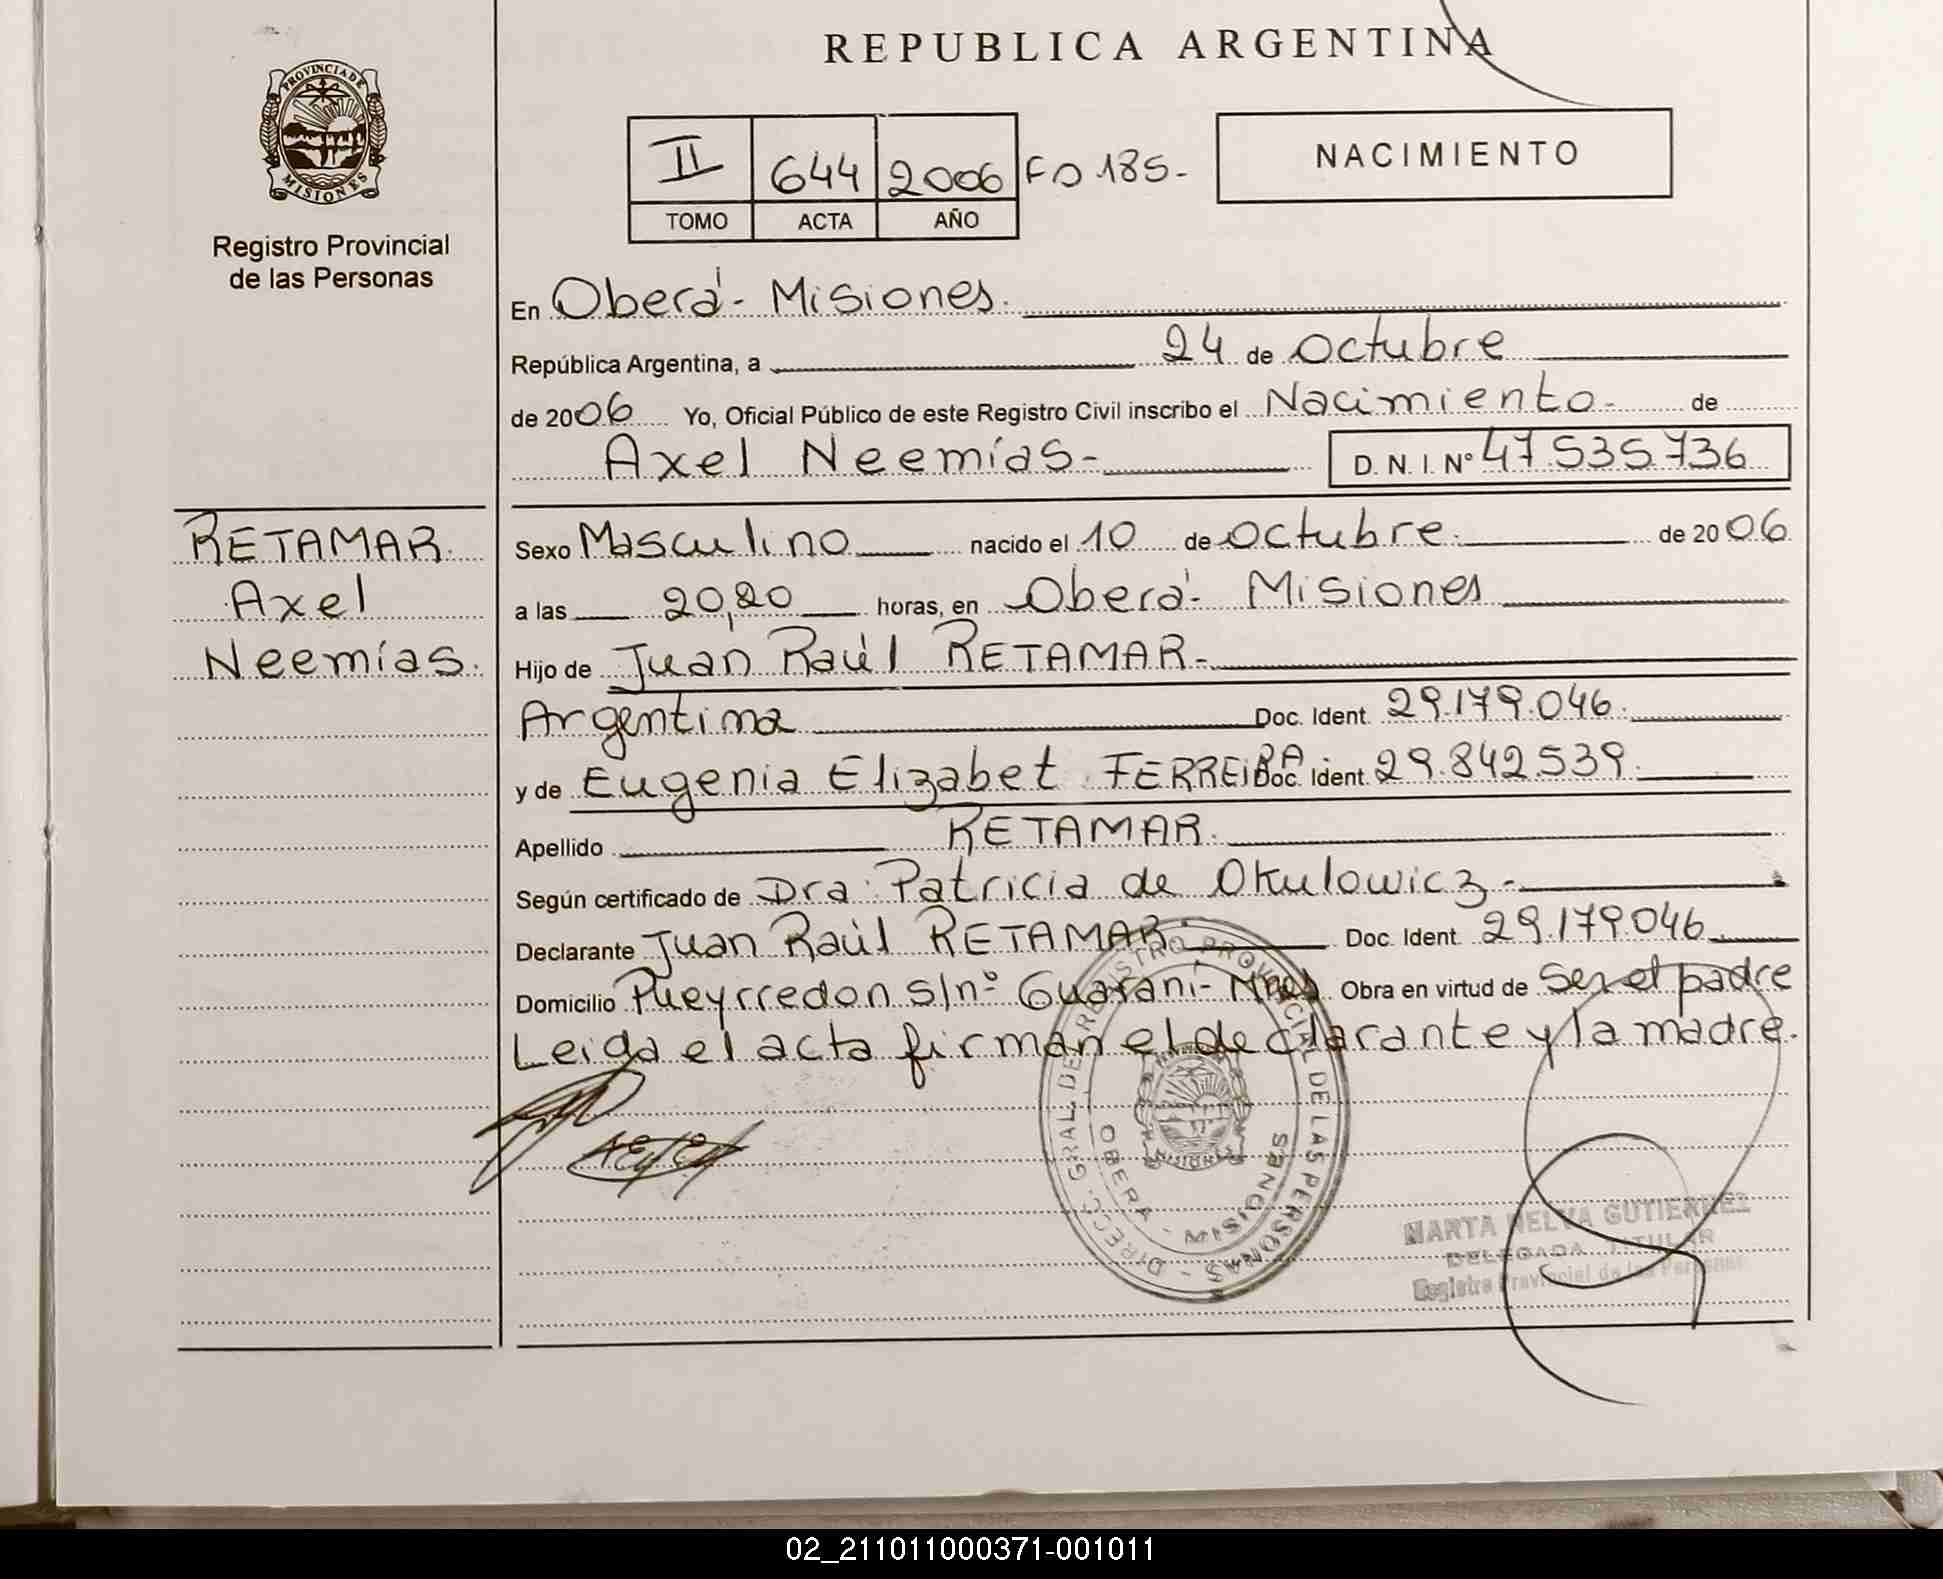 REPUBLICA ARGENTINA
PROVINCIA DE MISIONES
Registro Provincial
de las Personas
II 644 2006 Fo 185.-
TOMO ACTA AÑO
NACIMIENTO
En Oberá - Misiones.
República Argentina, a 24 de Octubre
de 2006 Yo, Oficial Público de este Registro Civil inscribo el Nacimiento.- de
Axel Neemías.- D. N. I. Nº 47.535.736
RETAMAR.
Axel
Neemías.
Sexo Masculino nacido el 10 de Octubre. de 2006
a las 20,20 horas, en Oberá - Misiones
Hijo de Juan Raúl RETAMAR.-
Argentina Doc. Ident. 29.179.046.
y de Eugenia Elizabet FERREIRA Doc. Ident. 29.842.539.
Apellido RETAMAR.
Según certificado de Dra. Patricia de Okulowicz.-
Declarante Juan Raúl RETAMAR. Doc. Ident. 29.179.046
Domicilio Pueyrredon s/nº Guaraní - Mnes. Obra en virtud de Ser el padre
Leida el acta firman el declarante y la madre.
DIRECC. GRAL. DE REGISTRO PROVINCIAL DE LAS PERSONAS -
OBERA - MISIONES
MISIONES
MARTA NELVA GUTIERREZ
DELEGADA TITULAR
Registro Provincial de las Personas
02_211011000371-001011